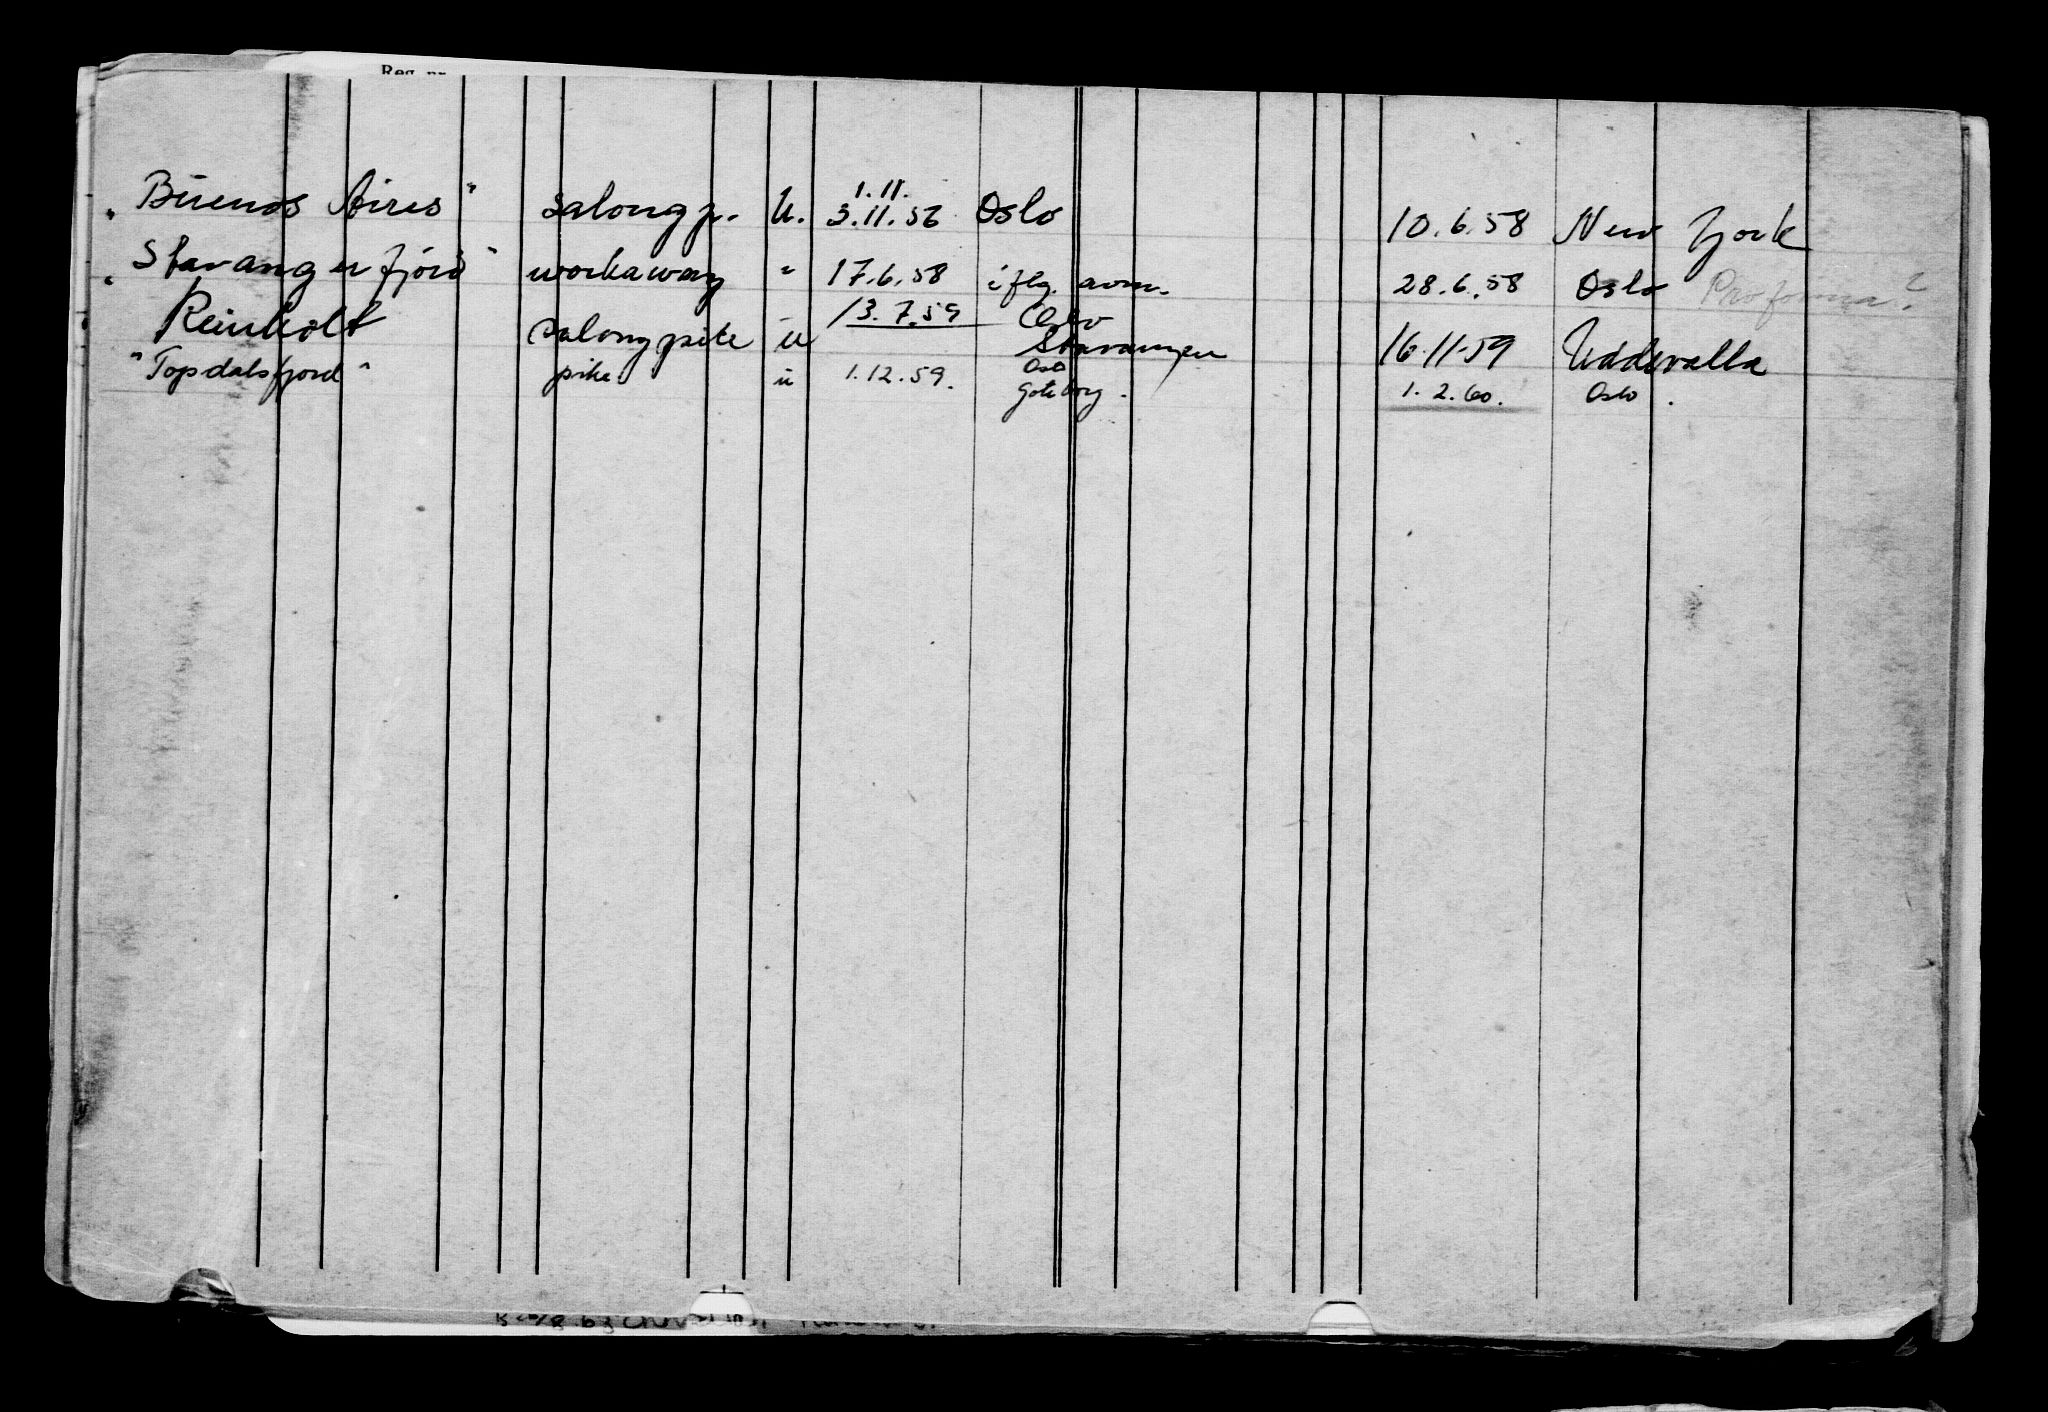 Reg. nr.
1.11.
"Buenos Aires" salongp. U. 3.11.56 Oslo 10.6.58 New York
"Stavangerfjord" workaway " 17.6.58 iflg. avm. 28.6.58 Oslo Proforma?
Reinholt salongpike u 13.7.59 Oslo
Stavanger 16.11.59 Uddevalla
"Topdalsfjord" pike u 1.12.59. Oslo
Göteborg. 1.2.60. Oslo.